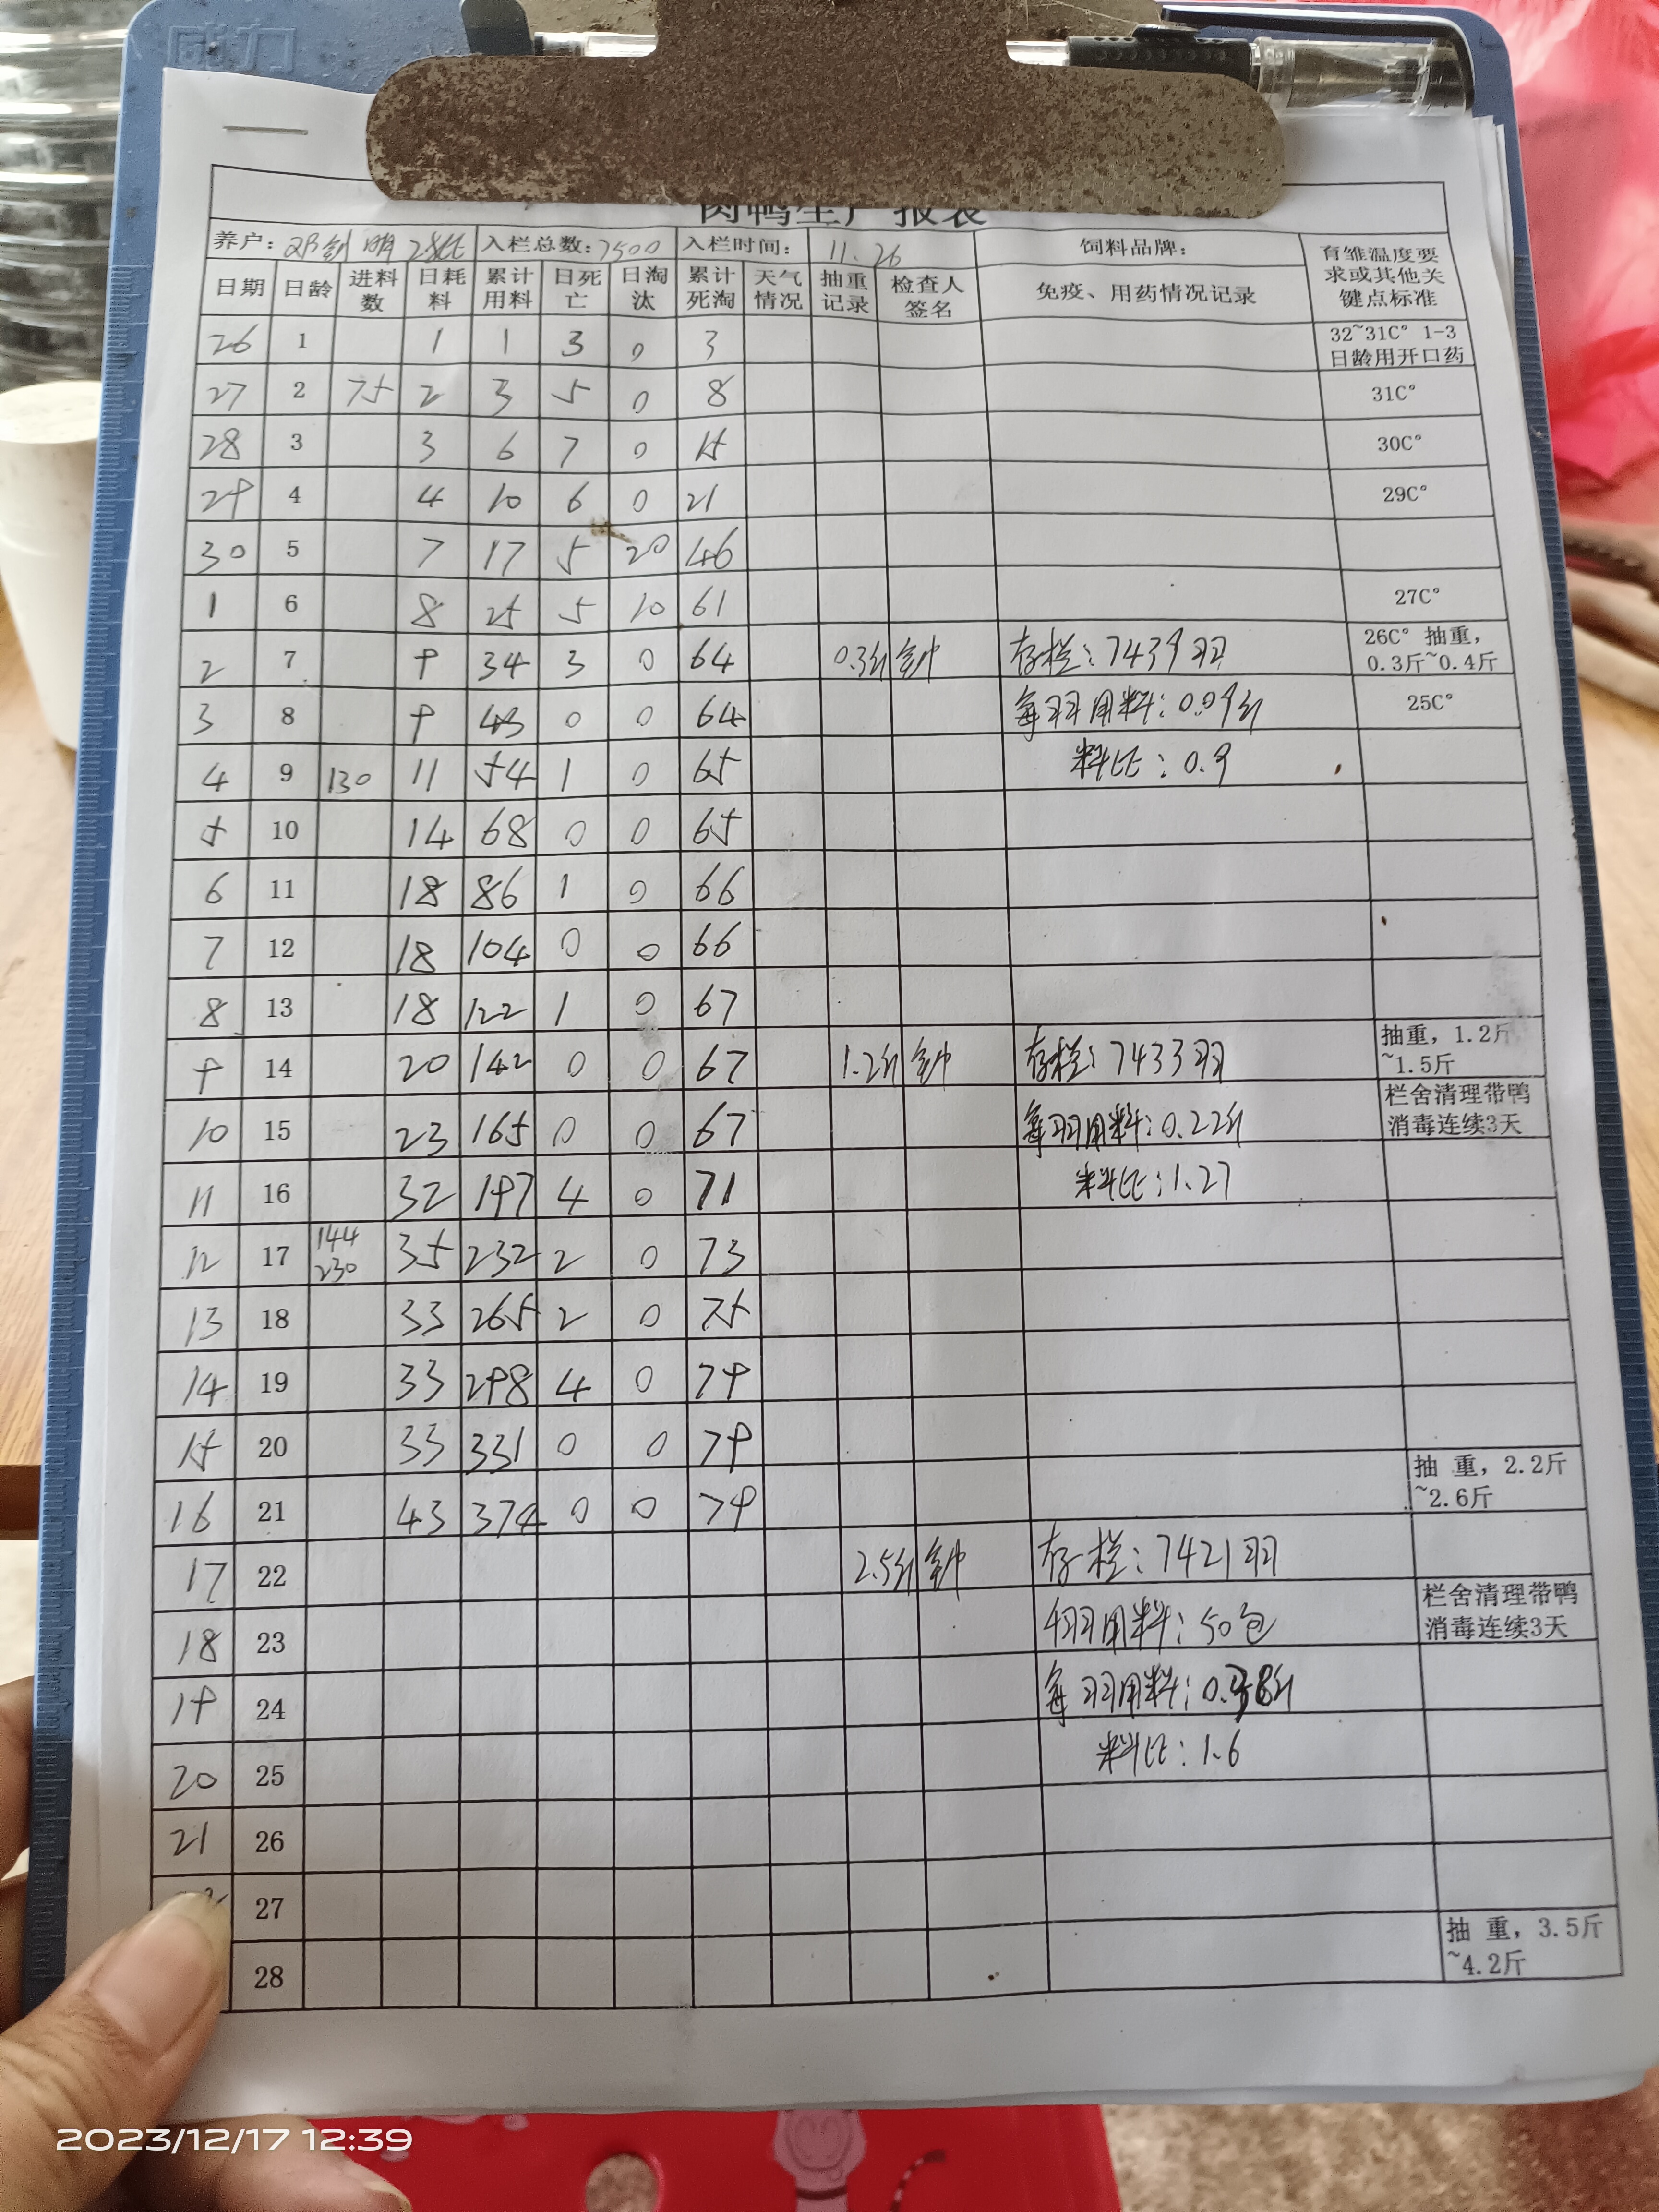 威力
肉鸭生产报表
养户: 邓剑明 28批 入栏总数: 7500 入栏时间: 11.26 饲料品牌: 育雏温度要求或其他关键点标准
日期 日龄 进料数 日耗料 累计用料 日死亡 日淘汰 累计死淘 天气情况 抽重记录 检查人签名 免疫、用药情况记录
26 1 1 1 3 0 3 32~31C° 1-3日龄用开口药
27 2 75 2 3 5 0 8 31C°
28 3 3 6 7 0 15 30C°
29 4 4 10 6 0 21 29C°
30 5 7 17 5 20 46
1 6 8 25 5 10 61 27C°
2 7 9 34 3 0 64 0.3斤 存栏: 7439羽 26C° 抽重, 0.3斤~0.4斤
3 8 9 43 0 0 64 每羽用料: 0.09斤 25C°
4 9 130 11 54 1 0 65 料比: 0.9
5 10 14 68 0 0 65
6 11 18 86 1 0 66
7 12 18 104 0 0 66
8 13 18 122 1 0 67
9 14 20 142 0 0 67 1.2斤 存栏: 7433羽 抽重, 1.2斤~1.5斤
10 15 23 165 0 0 67 每羽用料: 0.22斤 栏舍清理带鸭消毒连续3天
11 16 32 197 4 0 71 料比: 1.27
12 17 144 230 35 232 2 0 73
13 18 33 265 2 0 75
14 19 33 298 4 0 79
15 20 33 331 0 0 79
16 21 43 374 0 0 79 抽 重, 2.2斤~2.6斤
17 22 2.5斤 存栏: 7421羽
18 23 羽用料: 50包 栏舍清理带鸭消毒连续3天
19 24 每羽用料: 0.38斤
20 25 料比: 1.6
21 26
27
28 抽 重, 3.5斤~4.2斤
2023/12/17 12:39